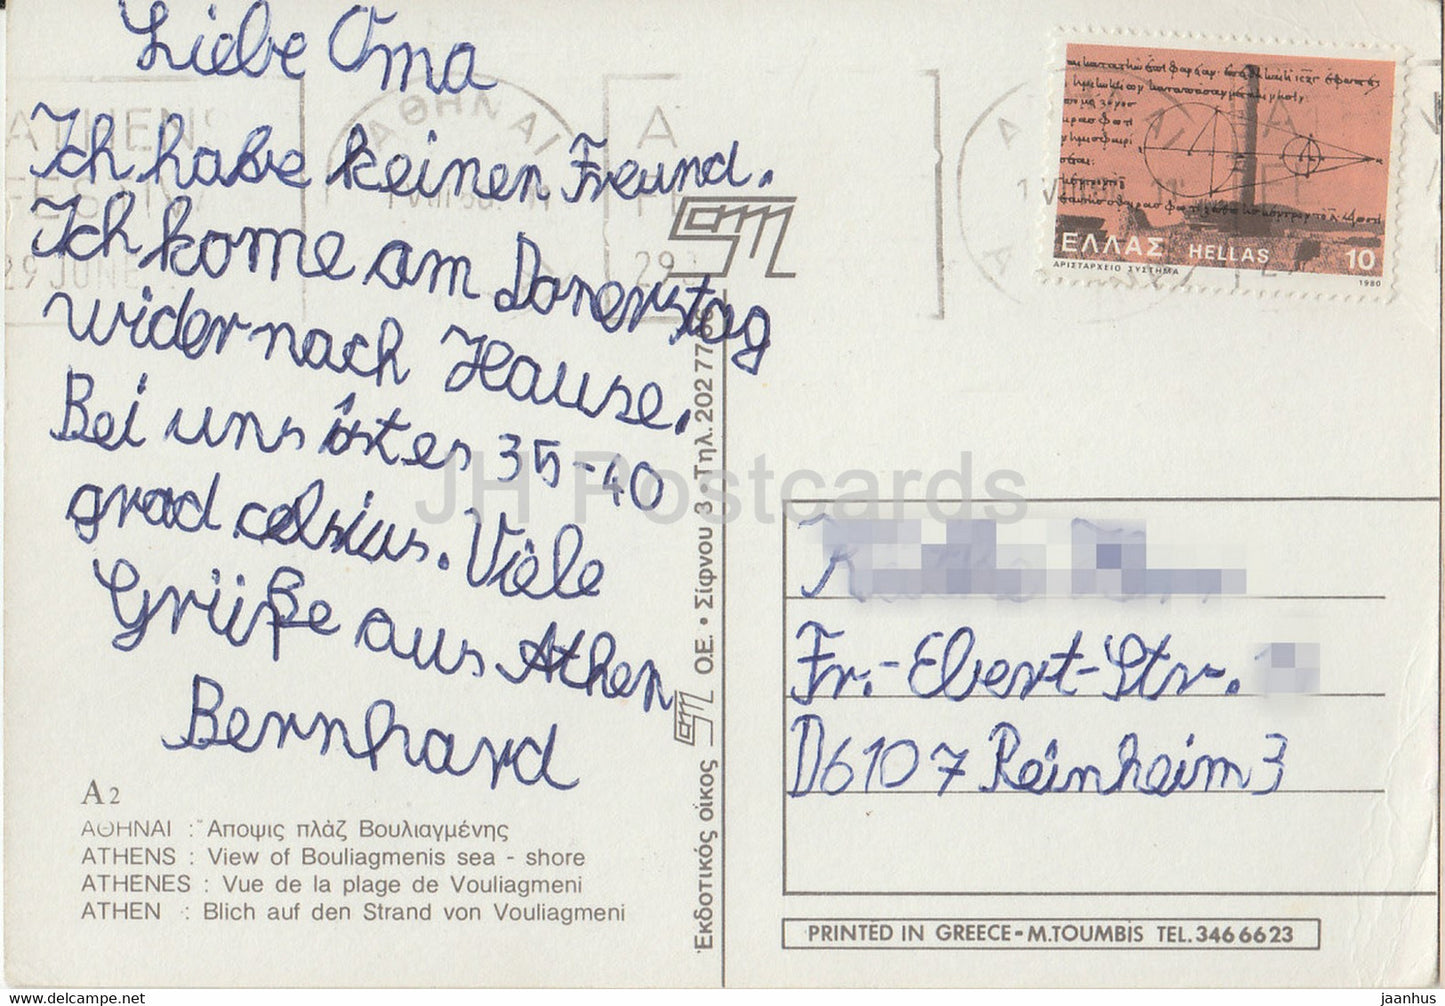 Liebe Oma
Ich habe keinen Freund.
Ich kome am Donerstag
wider nach Hause.
Bei uns istes 35-40
grad celsius. Viele
Grüße aus Athen
Bernhard
A2
ΑΘΗΝΑΙ : Ἄποψις πλὰζ Βουλιαγμένης
ATHENS : View of Bouliagmenis sea - shore
ATHENES : Vue de la plage de Vouliagmeni
ATHEN : Blich auf den Strand von Vouliagmeni
Ἐκδοτικός οἶκος Ο.Ε. • Σίφνου 3 • Τηλ. 202 77
ATHENS
29 JUNE
ΑΘΗΝΑΙ
ΕΛΛΑΣ HELLAS 10
ΑΡΙΣΤΑΡΧΕΙΟ ΣΥΣΤΗΜΑ
1980
Fr.-Ebert-Str.
D6107 Reinheim 3
PRINTED IN GREECE-M.TOUMBIS TEL. 346 66 23
JH Postcards
akpool A02
jaanhus